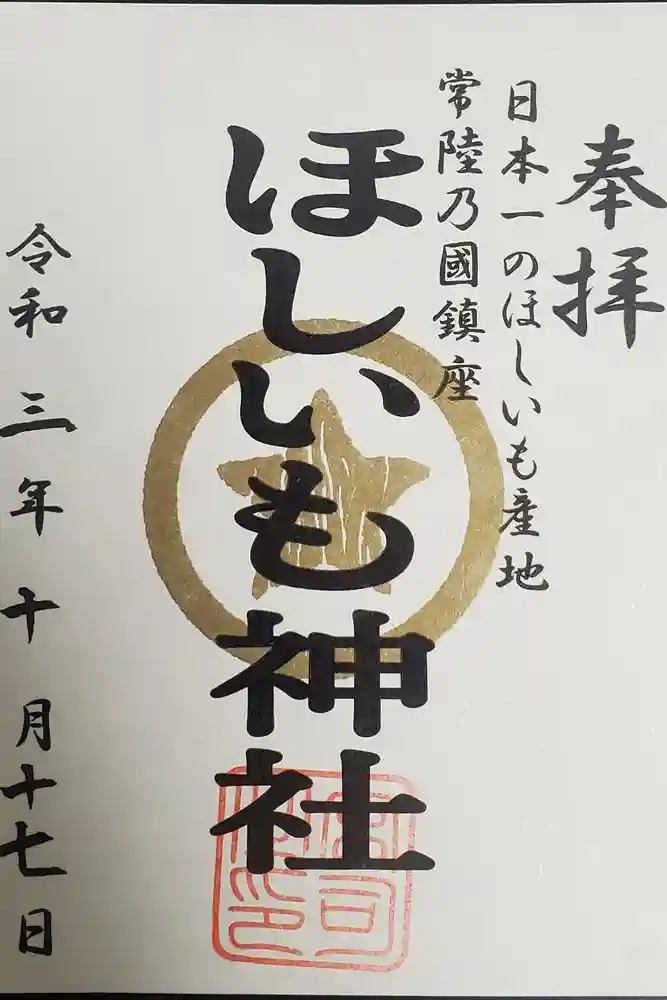 奉拝
日本一のほしいも産地
常陸乃國鎮座
ほしいも神社
令和三年十月十七日